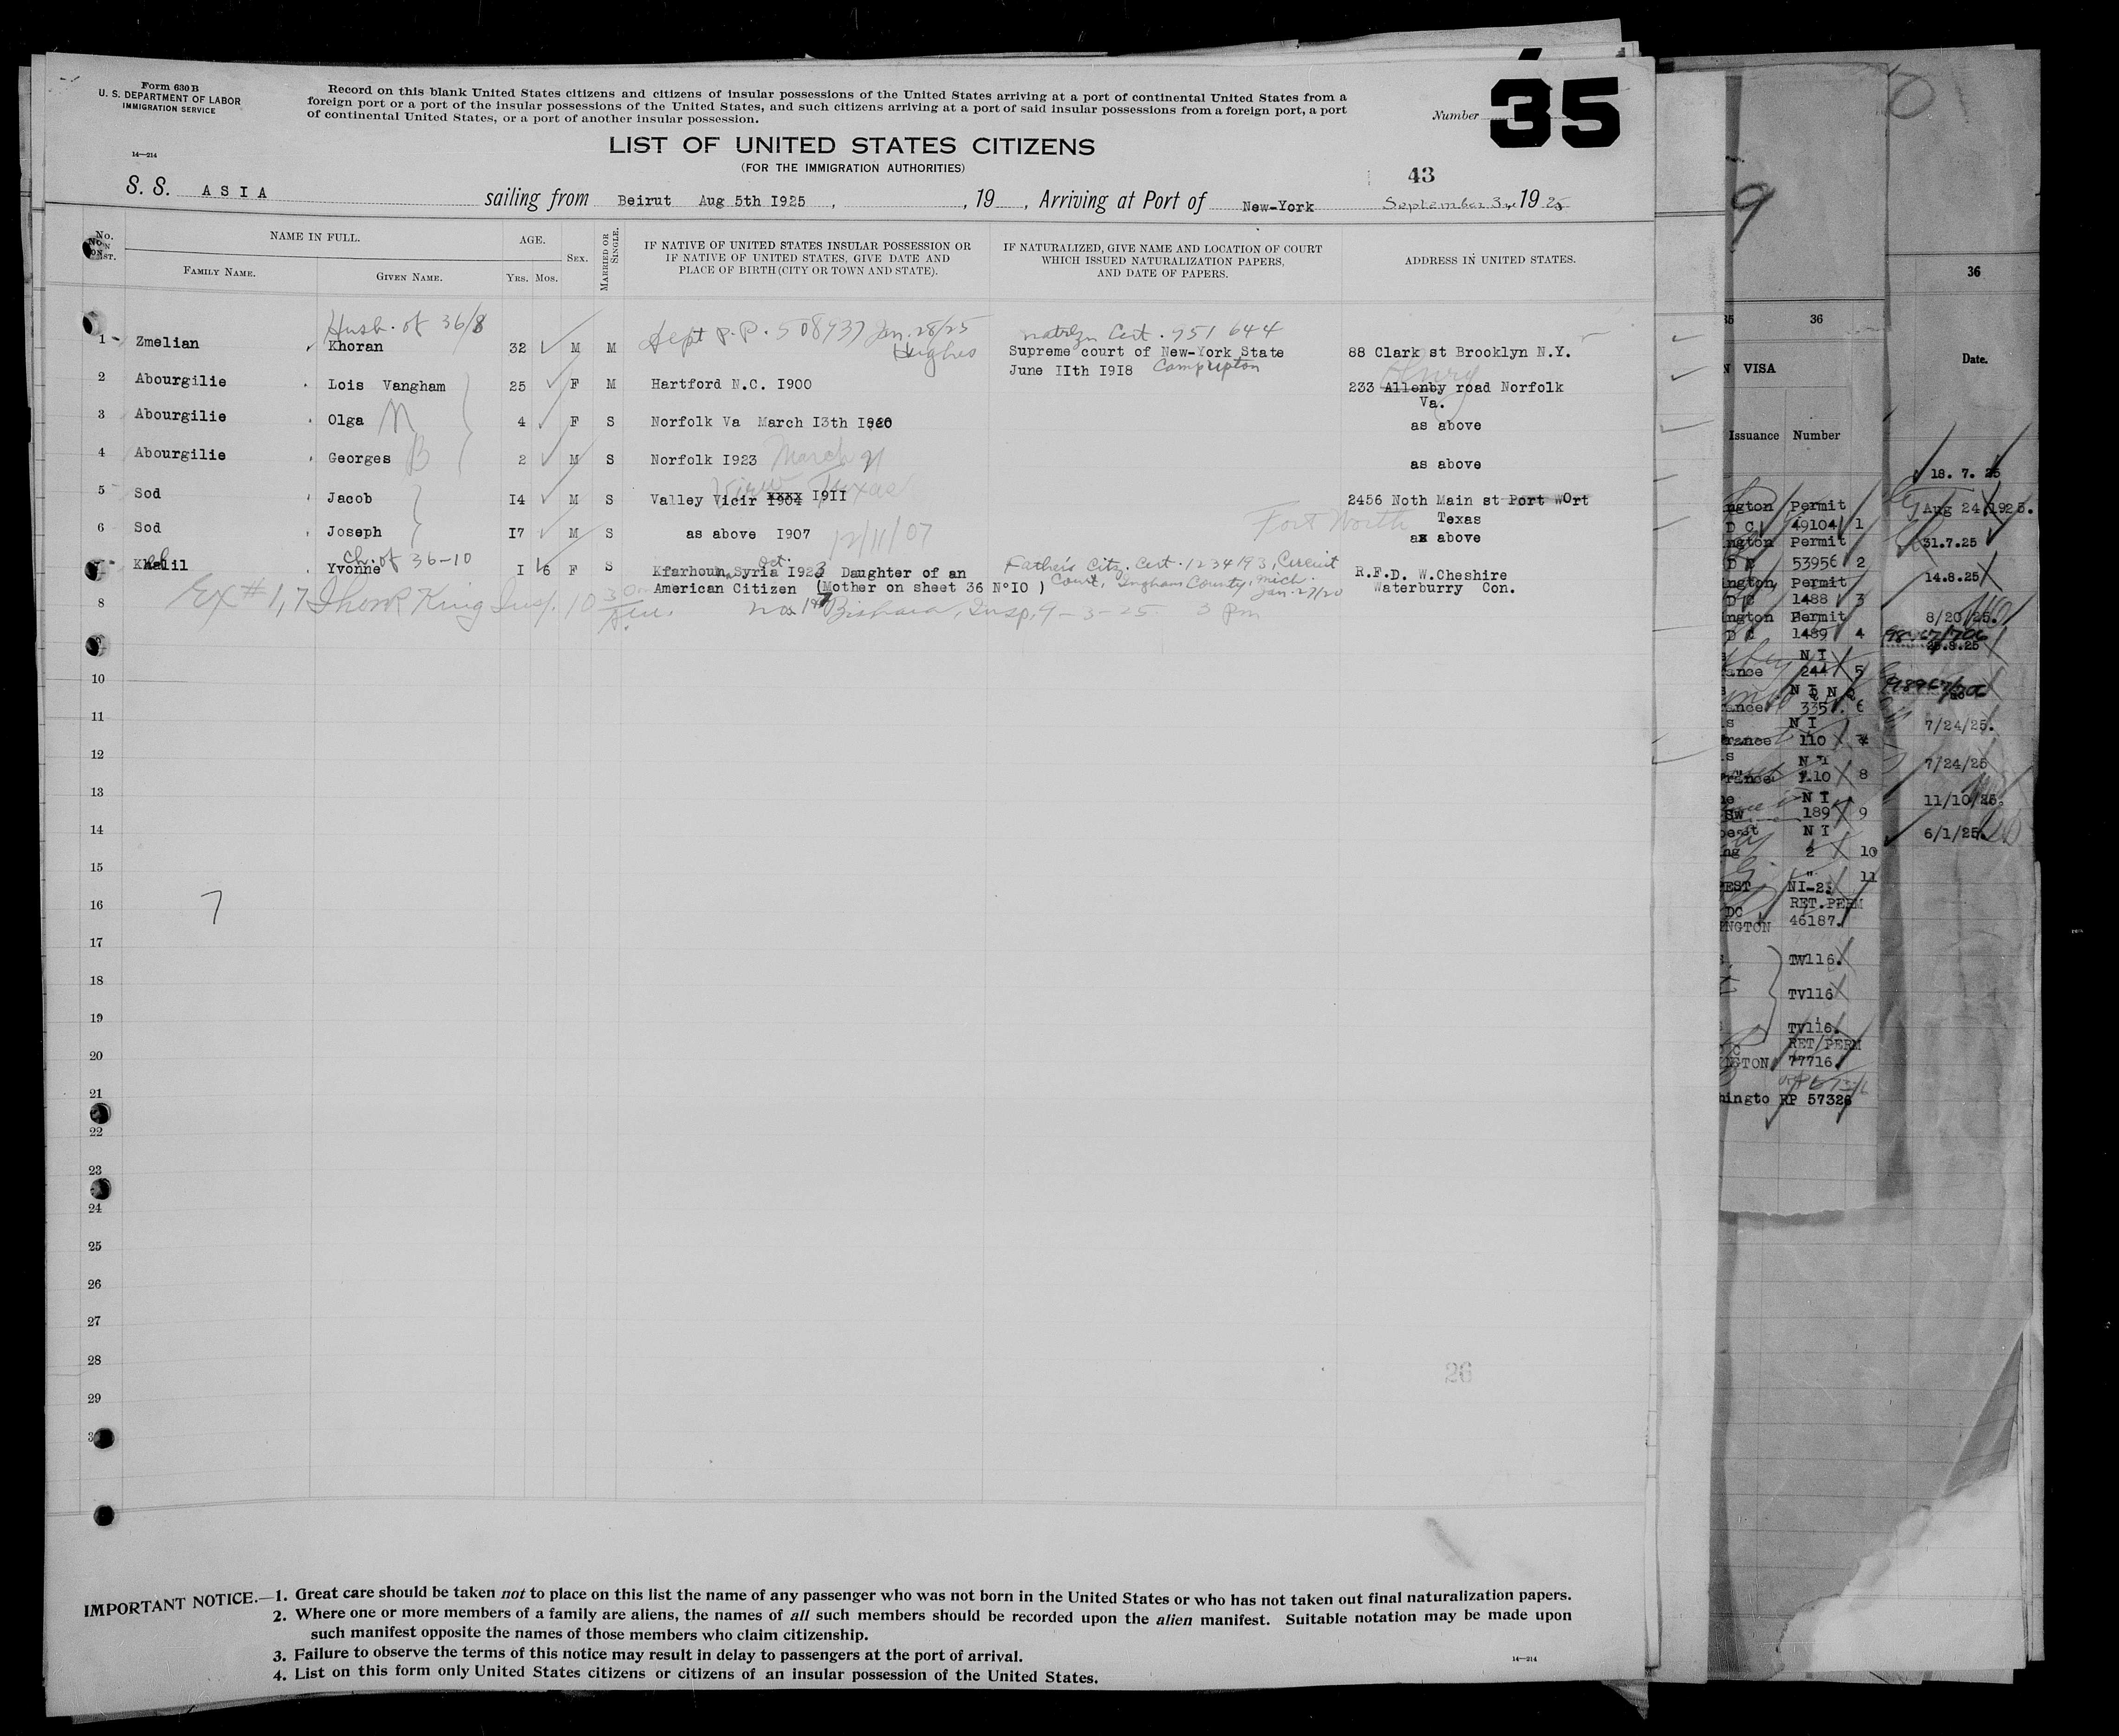 Form 630 B
U. S. DEPARTMENT OF LABOR
IMMIGRATION SERVICE
14—214
Record on this blank United States citizens and citizens of insular possessions of the United States arriving at a port of continental United States from a
foreign port or a port of the insular possessions of the United States, and such citizens arriving at a port of said insular possessions from a foreign port, a port
of continental United States, or a port of another insular possession.
Number 35
LIST OF UNITED STATES CITIZENS
(FOR THE IMMIGRATION AUTHORITIES)
43
S. S. ASIA sailing from Beirut Aug 5th I925 , , 19 , Arriving at Port of New-York September 3 1925
No. ON LIST.
NAME IN FULL.
FAMILY NAME.
GIVEN NAME.
AGE.
YRS. MOS.
SEX.
MARRIED OR SINGLE.
IF NATIVE OF UNITED STATES INSULAR POSSESSION OR
IF NATIVE OF UNITED STATES, GIVE DATE AND
PLACE OF BIRTH (CITY OR TOWN AND STATE).
IF NATURALIZED, GIVE NAME AND LOCATION OF COURT
WHICH ISSUED NATURALIZATION PAPERS,
AND DATE OF PAPERS.
ADDRESS IN UNITED STATES.
Husb. of 36/8 Dept P.P. 508937 Jan. 28/25 Hughes natrlzn Cert. 951 644
1 Zmelian Khoran 32 M M Supreme court of New-York State 88 Clark st Brooklyn N.Y.
June IIth I9I8
2 Abourgilie Lois Vangham 25 F M Hartford N.C. I900 233 Allenby road Norfolk
Henry
Va.
3 Abourgilie Olga N 4 F S Norfolk Va March I3th I920 as above
4 Abourgilie Georges B 2 M S Norfolk I923 March as above
View Texas
5 Sod Jacob I4 M S Valley Vicir I904 xxxx I9II 2456 Noth Main st Port WOrt
Fort Worth Texas
6 Sod Joseph I7 M S as above I907 12/11/07 as above
Ch. of 36-10 Oct. Father's Citz. Cert. 1234193, Circuit
7 Khalil Yvonne I 6 F S Kfarhoun Syria I923 Daughter of an R.F.D. W.Cheshire
Court, Ingham County, Mich. Jan. 27/20
American Citizen (Mother on sheet 36 N°IO ) Waterburry Con.
8 Ex # 1,7 King Insp. 10 30 Bishara, Insp. 9-3-25 3 pm
9
10
11
12
13
14
15
16
7
17
18
19
20
21
22
23
24
25
26
27
28
26
29
IMPORTANT NOTICE.—1. Great care should be taken not to place on this list the name of any passenger who was not born in the United States or who has not taken out final naturalization papers.
2. Where one or more members of a family are aliens, the names of all such members should be recorded upon the alien manifest. Suitable notation may be made upon
such manifest opposite the names of those members who claim citizenship.
3. Failure to observe the terms of this notice may result in delay to passengers at the port of arrival.
4. List on this form only United States citizens or citizens of an insular possession of the United States.
14—214
9
36
36
VISA
Date.
Issuance Number
18. 7. 25
ngton Permit
Aug 24 1925.
D C 49104 1
ngton Permit
31.7.25
53956 2
ngton Permit
14.8.25
1488 3
ngton Permit
8/20/25.
D C 1489 4
N I
ance 244 5
N I
ance 335 6
N I
7/24/25.
rance 110
N I
7/24/25
rance 110 8
N I
11/10/25.
189 9
N I
6/1/25.
ng 2 10
11
PEST NI-2.
DC RET.PERM
INGTON 46187.
TV116.
TV116
TV116.
RET/PERM
NGTON 77716.
hingto RP 57326